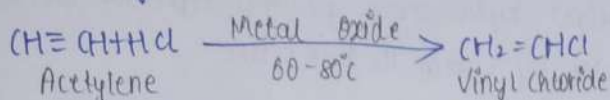 CH≡CH+HCl Metal Oxide CH₂=CHCl
Acetylene 60-80°C Vinyl Chloride